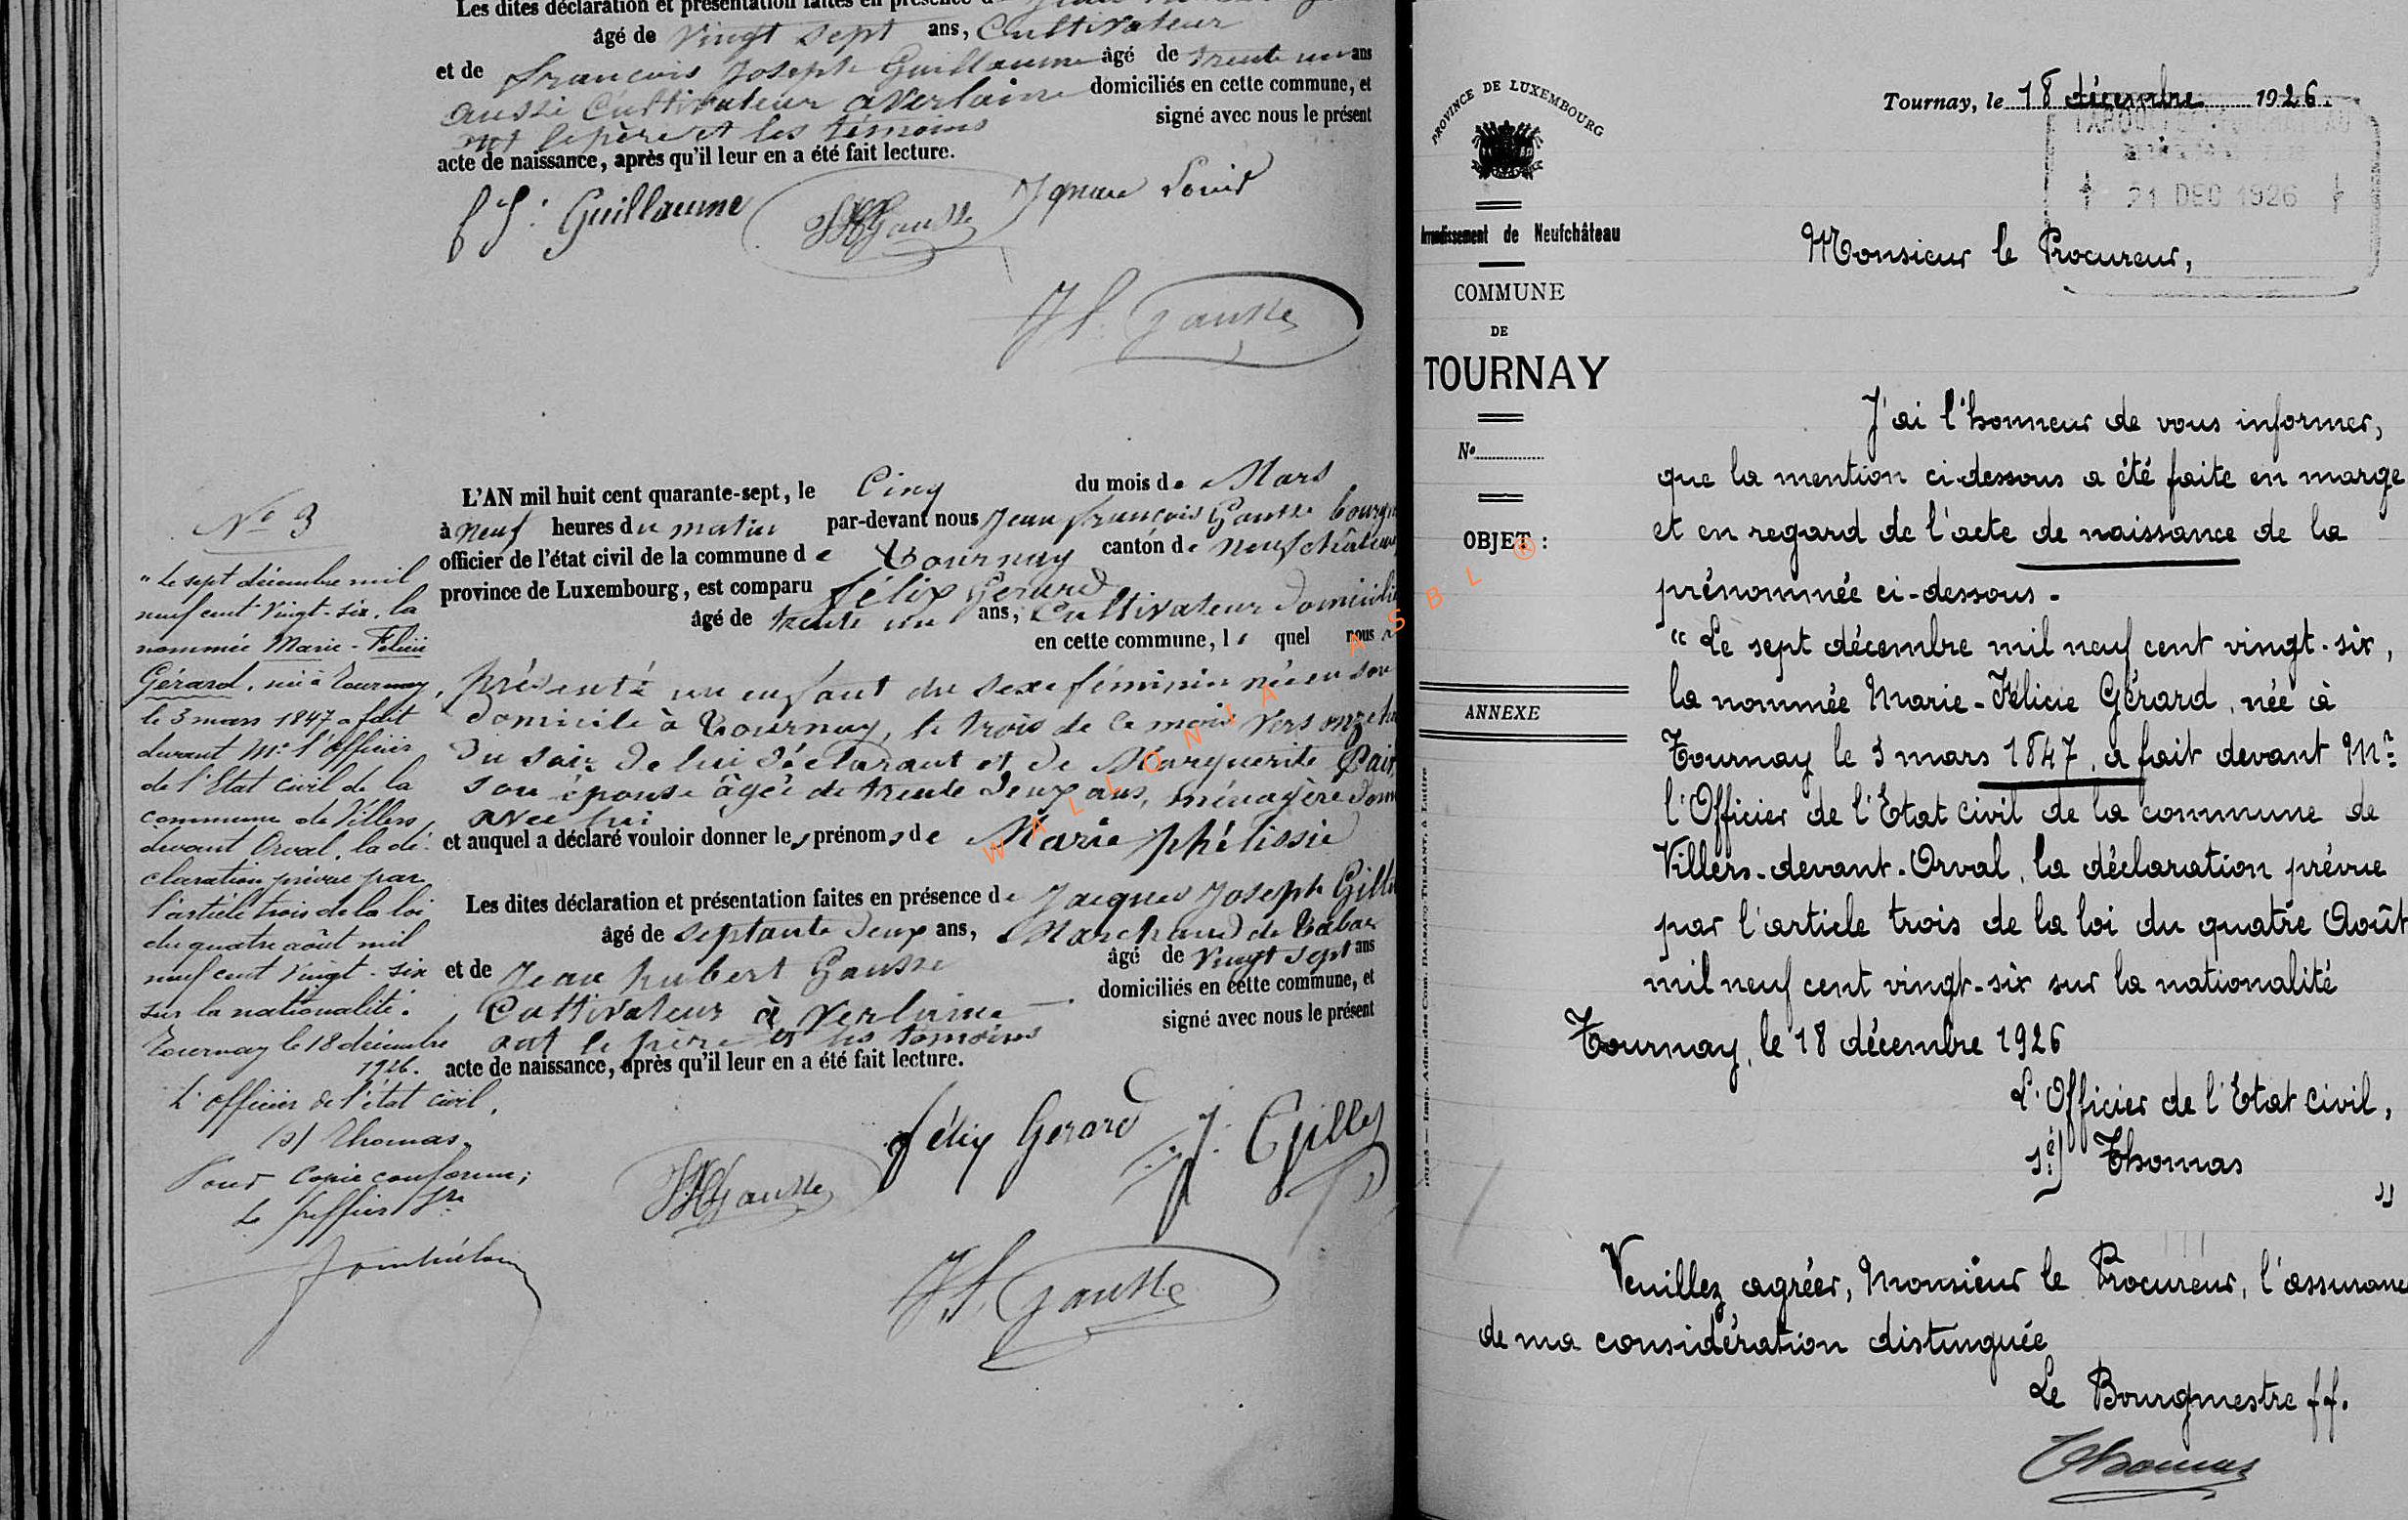 Les dites déclaration et présentation faites en présence d
âgé de Vingt sept ans, Cultivateur
et de francois Joseph Guillaume âgé de trente un ans
aussi Cultivateur a Verlaine domiciliés en cette commune, et
ont le père et les témoins signé avec nous le présent
acte de naissance, après qu'il leur en a été fait lecture.
f J: Guillaume JHGausse Ignace Louis
Jf. Gausse
N° 3
" Le sept décembre mil
neuf cent vingt-six, la
nommée Marie-Félicie
Gérard, née à Tournay,
le 3 mars 1847 a fait
devant Mr l'Officier
de l'Etat civil de la
commune de Villers
devant Orval, la dé-
claration prévue par
l'article trois de la loi
du quatre août mil
neuf cent vingt-six
sur la nationalité.
Tournay le 18 décembre
1926.
L'officier de l'état civil,
(s) Thomas,
Pour Copie conforme;
Le Greffier
L'AN mil huit cent quarante-sept, le Cinq du mois de Mars
à Neuf heures du matin par-devant nous Jean françois Gausse bourg
officier de l'état civil de la commune de Tournay canton de neufchâteau
province de Luxembourg, est comparu félix Gerard
âgé de trente un ans, Cultivateur domicilié
en cette commune, le quel nous a
présenté un enfant du sexe féminin née en son
domicile à Tournay, le trois de ce mois vers onze
du soir de lui déclarant et de Marguerite
son épouse âgée de trente deux ans, ménagère
avec lui
et auquel a déclaré vouloir donner les prénoms de Marie phélissie
Les dites déclaration et présentation faites en présence de Jacques Joseph Gilles
âgé de septante deux ans, Marchand de Tabac
et de Jean hubert Gausse âgé de Vingt sept ans
Cultivateur à Verlaine domiciliés en cette commune, et
ont le père et les témoins signé avec nous le présent
acte de naissance, après qu'il leur en a été fait lecture.
félix Gerard J. J. Gilles
JHGausse
Jf. Gausse
WALLONIA ASBL ®
PROVINCE DE LUXEMBOURG
Arrondissement de Neufchâteau
COMMUNE
DE
TOURNAY
N°
OBJET :
ANNEXE
Tournay, le 18 décembre 1926.
21 DEC 1926
Monsieur le Procureur,
J'ai l'honneur de vous informer,
que la mention ci-dessous a été faite en marge
et en regard de l'acte de naissance de la
prénommée ci-dessous.
" Le sept décembre mil neuf cent vingt-six,
la nommée Marie-Félicie Gérard, née à
Tournay le 3 mars 1847, a fait devant Mr
l'Officier de l'Etat civil de la commune de
Villers-devant-Orval, la déclaration prévue
par l'article trois de la loi du quatre Août
mil neuf cent vingt-six sur la nationalité
Tournay, le 18 décembre 1926
L'Officier de l'Etat civil,
sé) Thomas
"
Veuillez agréer, Monsieur le Procureur, l'assurance
de ma considération distinguée
Le Bourgmestre ff.
Thomas